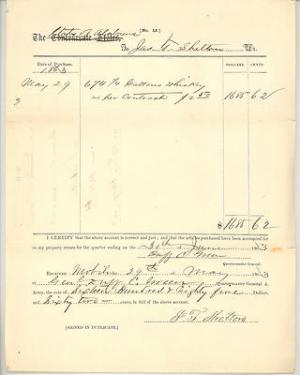 [No. 12.]
State of Alabama
The Confederate States,
To Jas. T. Shelton Dr.
Date of Purchase.
DOLLARS CENTS
1863
May 29 674 ¼ Gallons Whiskey
as per Contract 1685 62
$1685 62
I CERTIFY that the above account is correct and just; and that the articles purchased have been accounted for
on my property return for the quarter ending on the 30th June 1863
Duff C. Green
Quartermaster General
RECEIVED Mobile 29th May 1863
of Genl Duff C. Green Quartermaster General A.
Army, the sum of Sixteen Hundred & Eighty five Dollars,
and Sixty two cents, in full of the above account.
J T Shelton
[SIGNED IN DUPLICATE.]